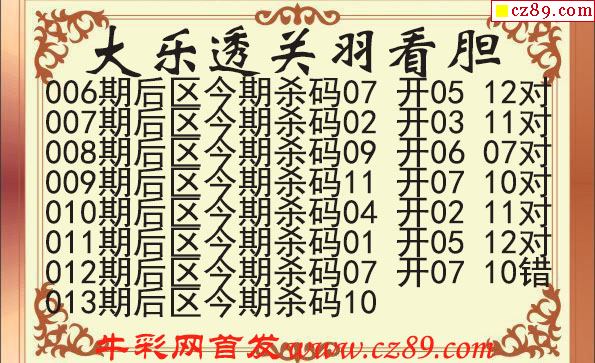 cz89.com
大乐透关羽看胆
006期后区今期杀码07 开05 12对
007期后区今期杀码02 开03 11对
008期后区今期杀码09 开06 07对
009期后区今期杀码11 开07 10对
010期后区今期杀码04 开02 11对
011期后区今期杀码01 开05 12对
012期后区今期杀码07 开07 10错
013期后区今期杀码10
牛彩网首发www.cz89.com